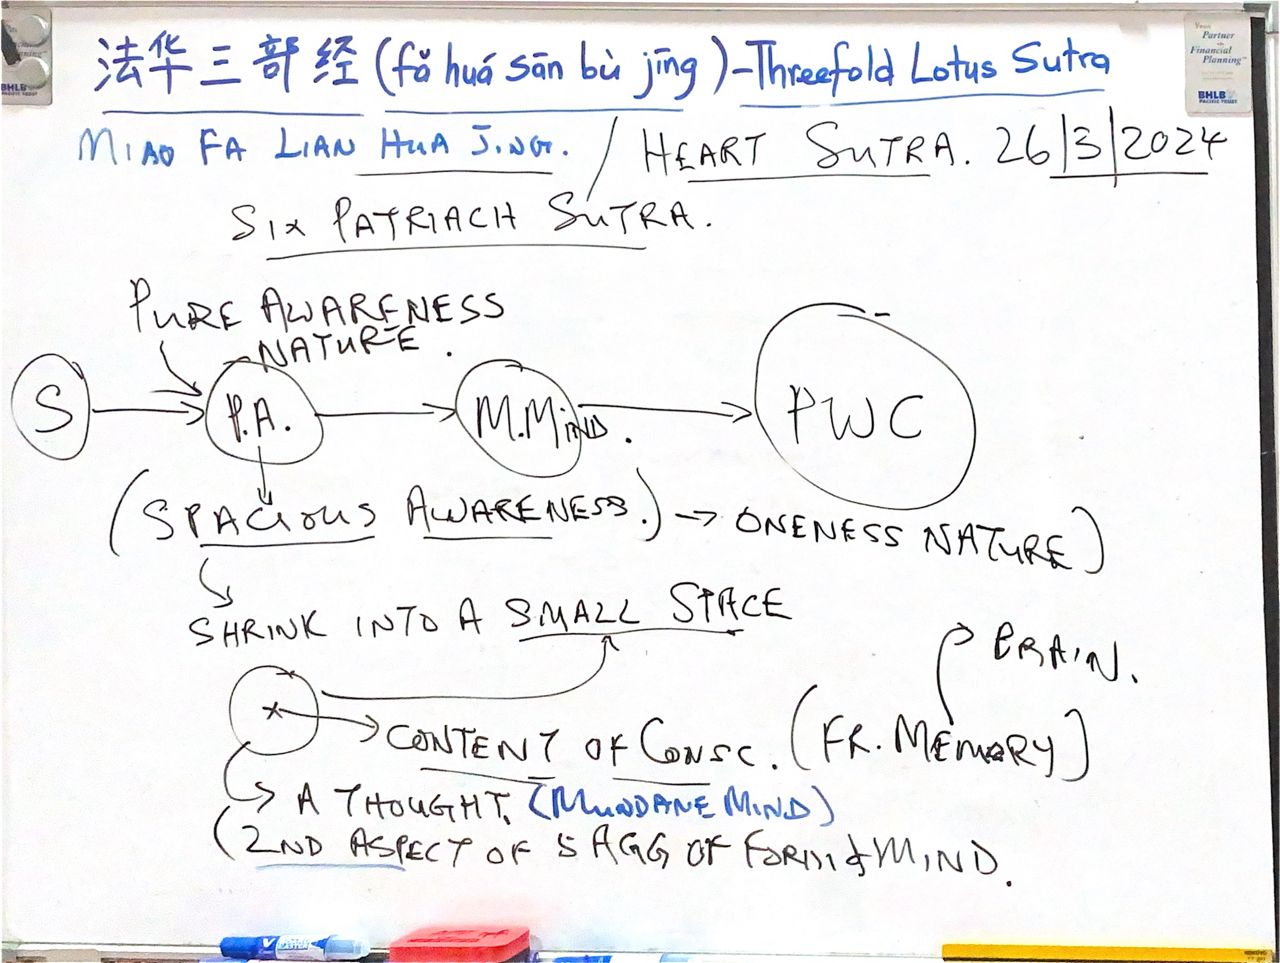 法华三部经 (fǎ huá sān bù jīng) - Threefold Lotus Sutra
MIAO FA LIAN HUA JING. / HEART SUTRA. 26/3/2024
SIX PATRIACH SUTRA.
PURE AWARENESS
NATURE.
S P.A. M.MIND. PWC
(SPACIOUS AWARENESS.) → ONENESS NATURE)
SHRINK INTO A SMALL SPACE
BRAIN.
CONTENT OF CONSC. (FR. MEMORY)
A THOUGHT. (MUNDANE MIND)
(2ND ASPECT OF 5 AGG OF FORM & MIND.
Your
Partner
in
Financial
Planning
BHLB
PACIFIC TRUST
BHLB
PACIFIC TRUST